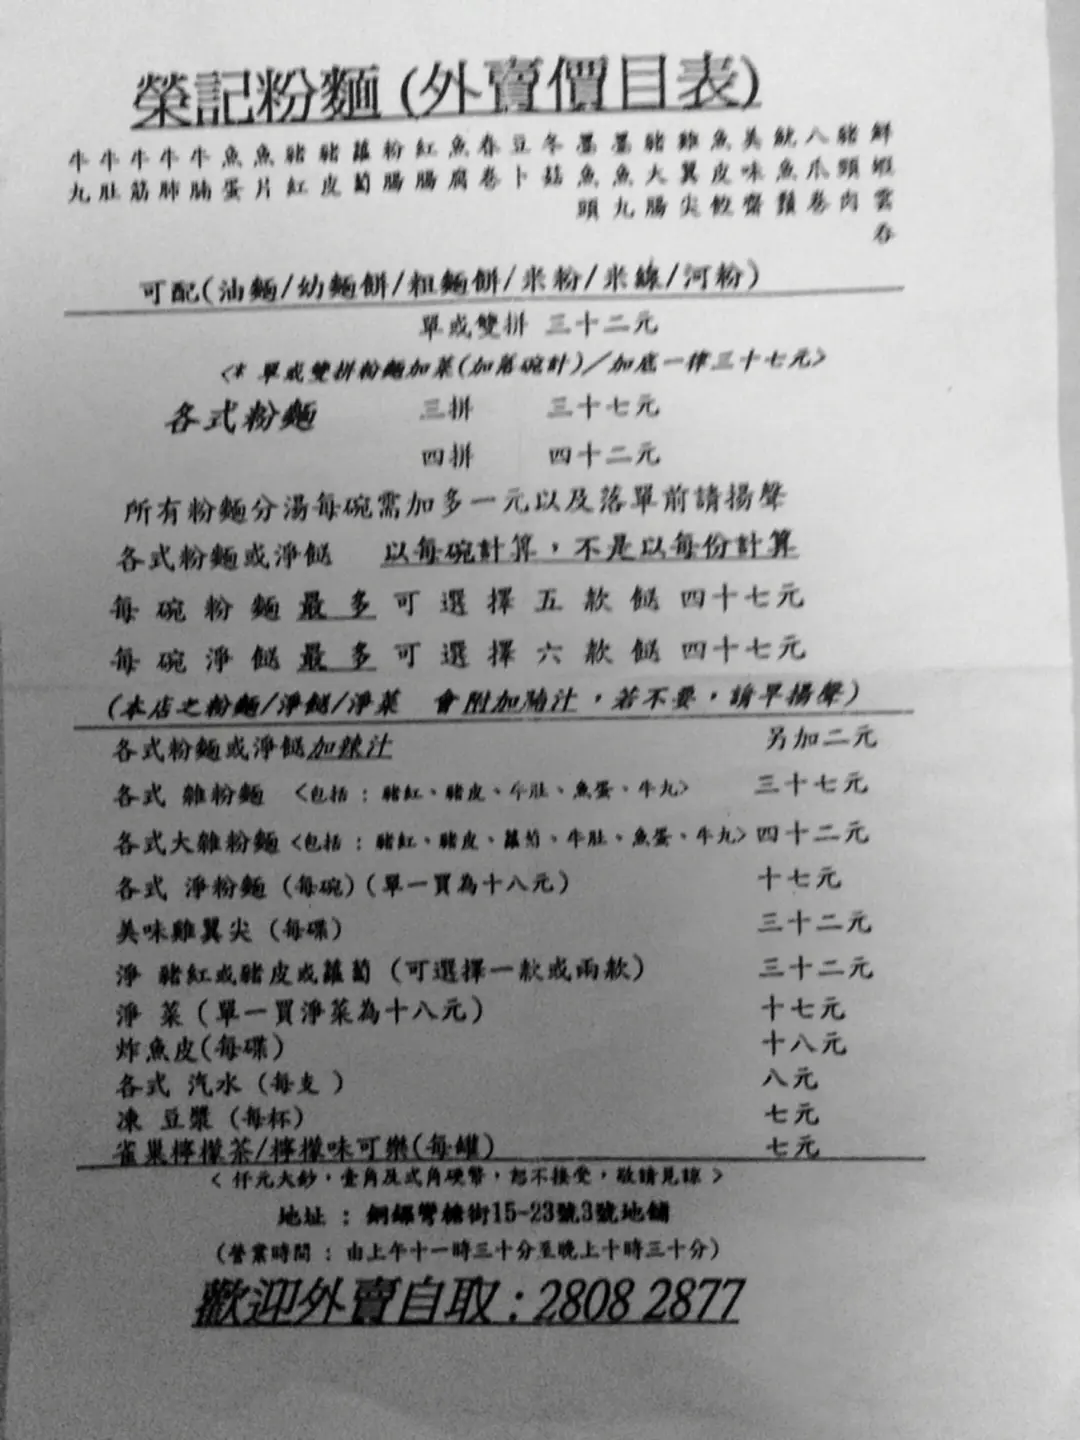 榮記粉麵(外賣價目表)
牛 牛 牛 牛 牛 魚 魚 豬 豬 蘿 粉 紅 魚 春 豆 冬 墨 墨 豬 雞 魚 美 魷 八 豬 鮮
丸 肚 筋 肺 腩 蛋 片 紅 皮 蔔 腸 腸 腐 卷 卜 菇 魚 魚 大 翼 皮 味 魚 爪 頸 蝦
頭 丸 腸 尖 餃 齋 鬚 卷 肉 雲
吞
可配(油麵/幼麵餅/粗麵餅/米粉/米線/河粉)
單或雙拼 三十二元
<* 單或雙拼粉麵加菜(加落碗計)/加底一律三十七元>
各式粉麵 三拼 三十七元
四拼 四十二元
所有粉麵分湯每碗需加多一元以及落單前請揚聲
各式粉麵或淨餸 以每碗計算，不是以每份計算
每碗粉麵最多可選擇五款餸四十七元
每碗淨餸最多可選擇六款餸四十七元
(本店之粉麵/淨餸/淨菜 會附加滷汁，若不要，請早揚聲)
各式粉麵或淨餸加辣汁 另加二元
各式 雜粉麵 <包括：豬紅、豬皮、牛肚、魚蛋、牛丸> 三十七元
各式大雜粉麵<包括：豬紅、豬皮、蘿蔔、牛肚、魚蛋、牛丸> 四十二元
各式 淨粉麵 (每碗)(單一買為十八元) 十七元
美味雞翼尖 (每碟) 三十二元
淨 豬紅或豬皮或蘿蔔 (可選擇一款或兩款) 三十二元
淨 菜 (單一買淨菜為十八元) 十七元
炸魚皮(每碟) 十八元
各式 汽水 (每支 ) 八元
凍 豆漿 (每杯) 七元
雀巢檸檬茶/檸檬味可樂(每罐) 七元
< 仟元大鈔，壹角及弍角硬幣，恕不接受，敬請見諒 >
地址 ： 銅鑼灣糖街15-23號3號地舖
(營業時間 : 由上午十一時三十分至晚上十時三十分)
歡迎外賣自取 : 2808 2877